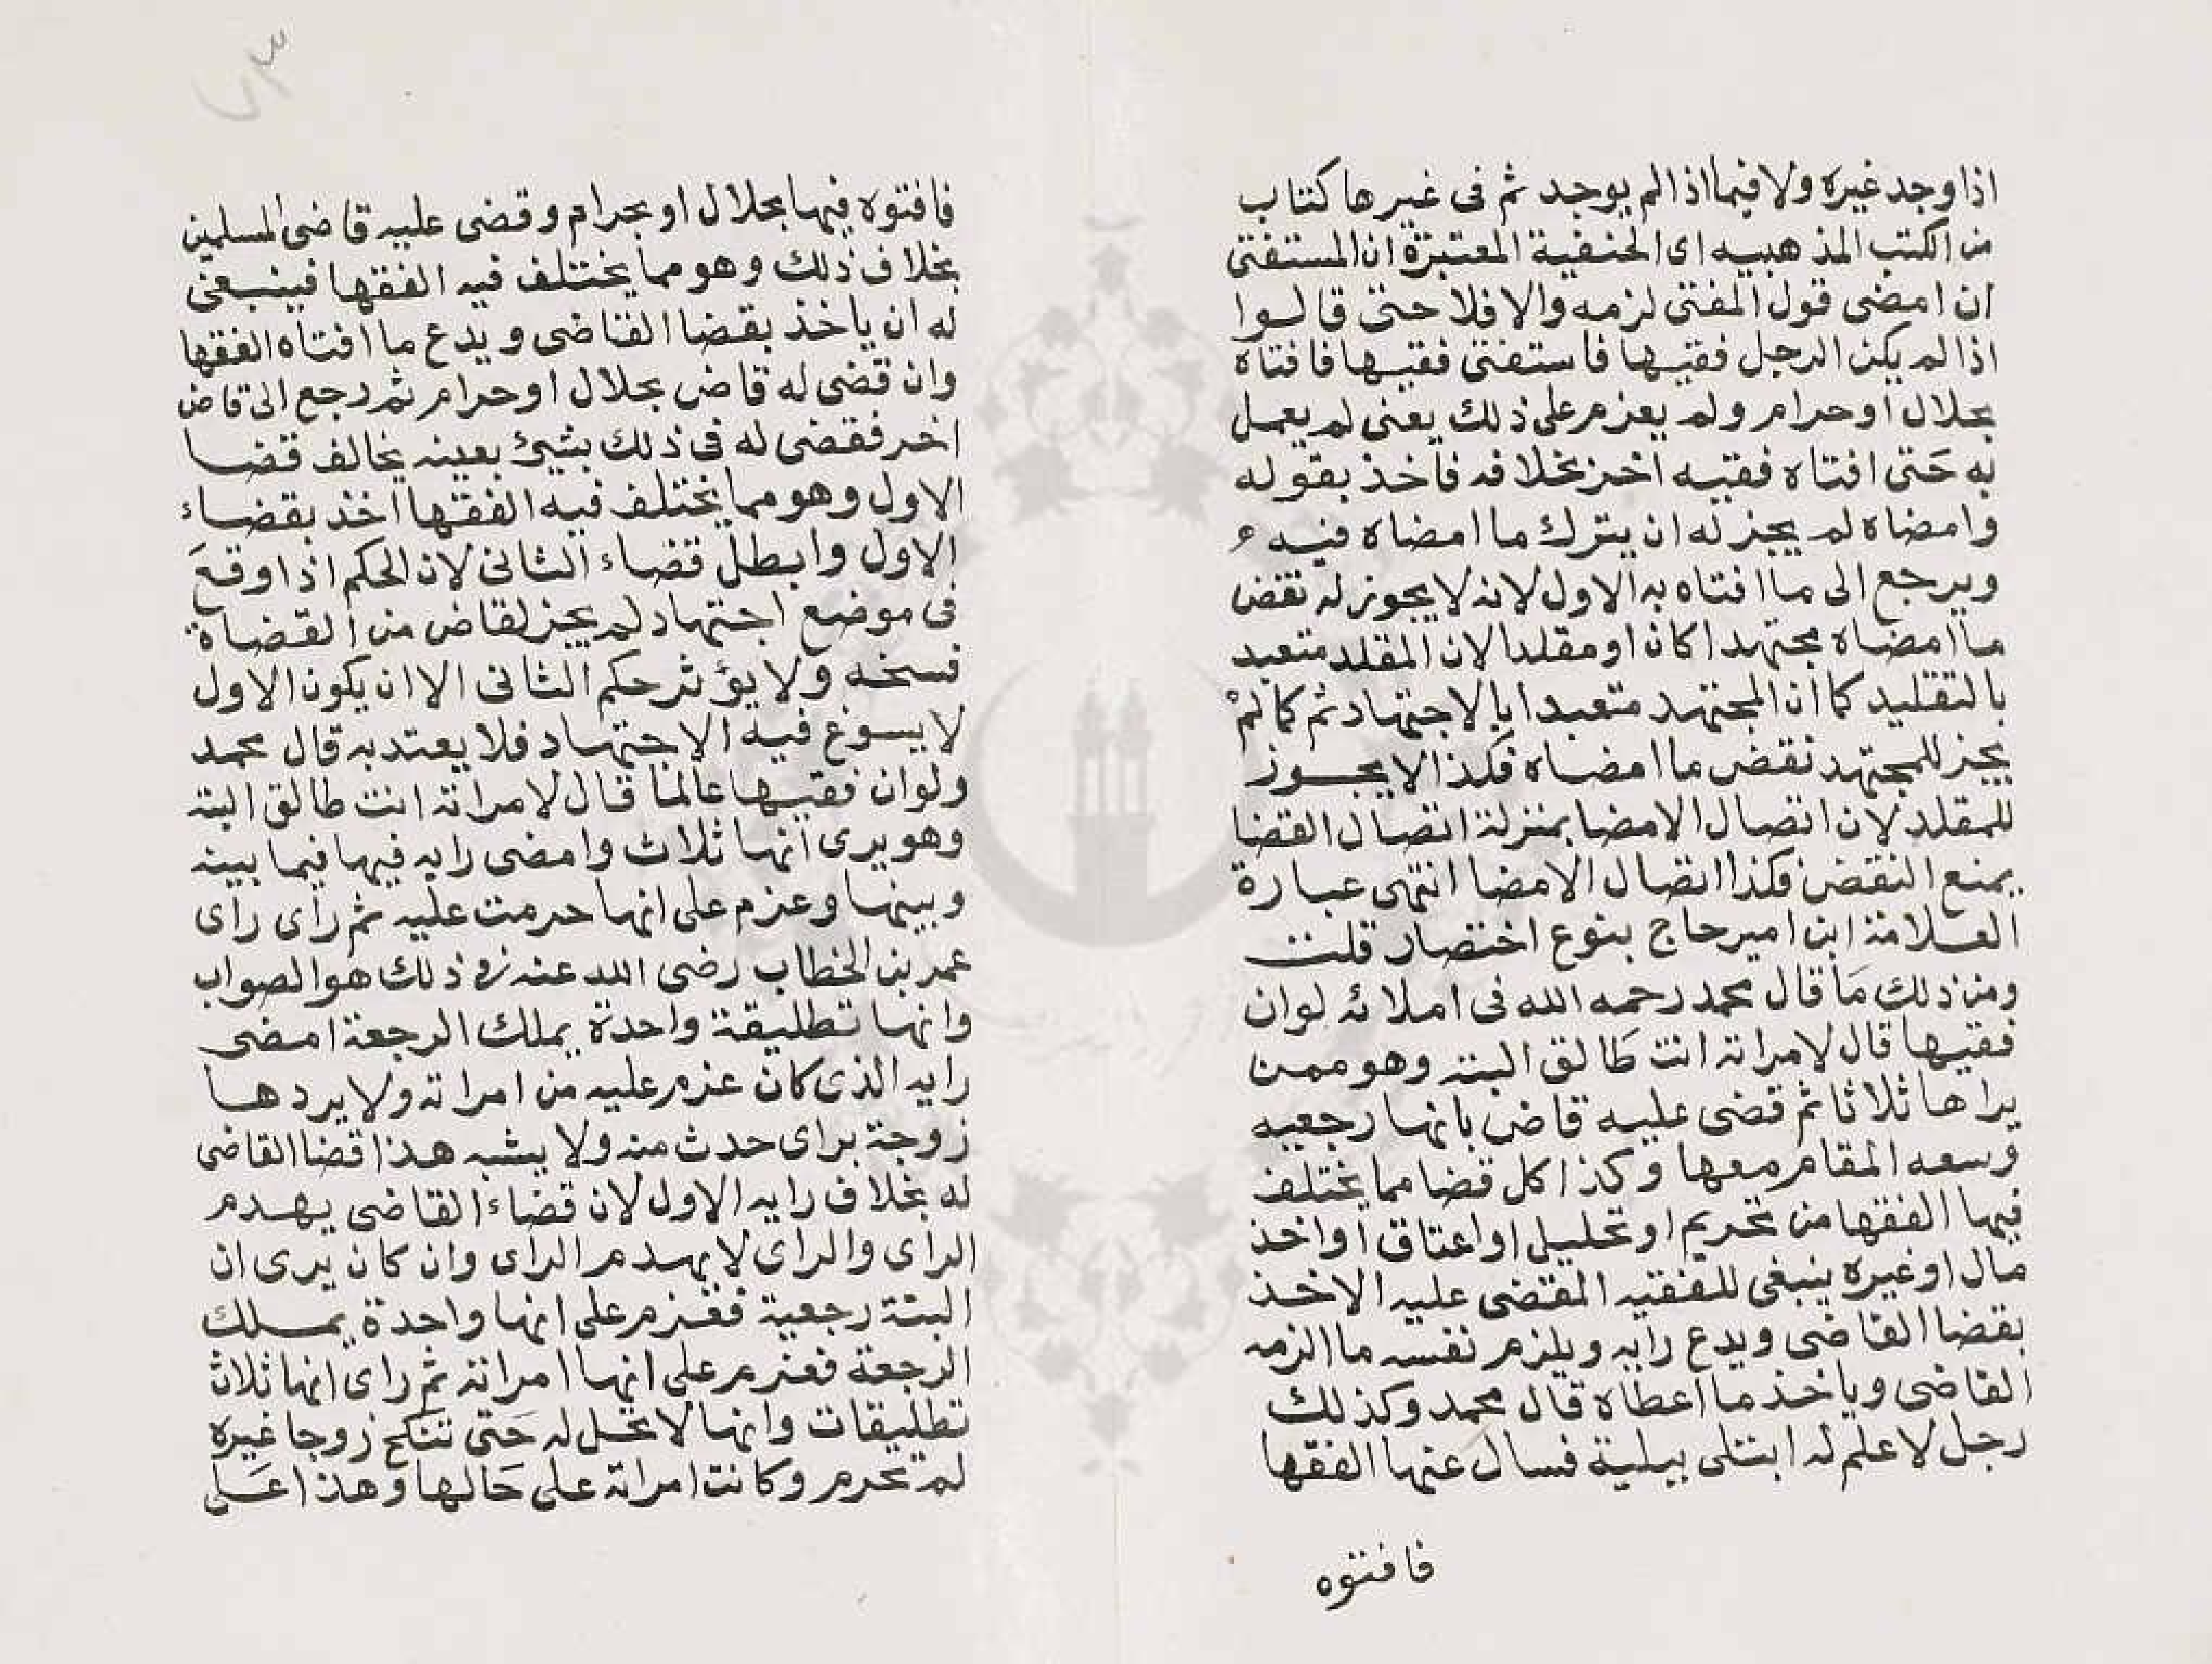 اذا وجد غيره ولا فيما اذا لم يوجد ثم فى غير ها كتاب
من الكتب المذهبيه اى الحنفية المعتبرة ان المستفتى
ان امضى قول المفتى لزمه والا فلا حتى قالوا
اذا لم يكن الرجل فقيها فاستفتى فقيها فافتاه
بحلال او حرام ولم يعزم على ذلك يعنى لم يعمل
به حتى افتاه فقيه اخر بخلافه فاخذ بقوله
وامضاه لم يجز له ان يترك ما امضاه فيه
ويرجع الى ما افتاه به الاول لانه لا يجوز له نقض
ما امضاه مجتهدا كان او مقلدا لان المقلد متعبد
بالتقليد كما ان المجتهد متعبدا بالاجتهاد ثم كما لم
يجز للمجتهد نقض ما امضاه فكذا لا يجوز
للمقلد لان اتصال الامضا بمنزلة اتصال القضا
يمنع النقض فكذا اتصال الامضا انتهى عبارة
العلامة ابن امير حاج بنوع اختصار قلت
ومن ذلك ما قال محمد رحمه الله فى املائه لو ان
فقيها قال لامراته انت طالق البته وهو ممن
يراها ثلاثا ثم قضى عليه قاض بانها رجعيه
وسعه المقام معها وكذا كل قضا مما يختلف
فيها الفقها من تحريم او تحليل او اعتاق او اخذ
مال او غيره ينبغى للفقيه المقضى عليه الاخذ
بقضا القاضى ويدع رايه ويلزم نفسه ما الزمه
القاضى وياخذ ما اعطاه قال محمد وكذلك
رجل لا علم له ابتلى ببلية فسال عنها الفقها
فافتوه
فافتوه فيها بحلال او بحرام وقضى عليه قاضى المسلمين
بخلاف ذلك وهو مما يختلف فيه الفقها فينبغى
له ان ياخذ بقضا القاضى ويدع ما افتاه الفقها
وان قضى له قاض بحلال او حرام ثم رجع الى قاض
اخر فقضى له فى ذلك بشيئ بعينه يخالف قضا
الاول وهو مما يختلف فيه الفقها اخذ بقضاء
الاول وابطل قضاء الثانى لان الحكم اذا وقع
فى موضع اجتهاد لم يجز لقاض من القضاة
فسخه ولا يؤثر حكم الثانى الا ان يكون الاول
لا يسوغ فيه الاجتهاد فلا يعتد به قال محمد
ولو ان فقيها عالما قال لامراته انت طالق البته
وهو يرى انها ثلاث وامضى رايه فيها فيما بينه
وبينها وعزم على انها حرمت عليه ثم راى راى
عمر بن الخطاب رضى الله عنه ذلك هو الصواب
وانها تطليقة واحدة يملك الرجعة امضى
رايه الذى كان عزم عليه من امراته ولا يردها
زوجة براى حدث منه ولا يشبه هذا قضا القاضى
له بخلاف رايه الاول لان قضاء القاضى يهدم
الراى والراى لا يهدم الراى وان كان يرى ان
البتة رجعية فعزم على انها واحدة يملك
الرجعة فعزم على انها امراته ثم راى انها ثلاث
تطليقات وانها لا تحل له حتى تنكح زوجا غيره
لم تحرم وكانت امراته على حالها وهذا على